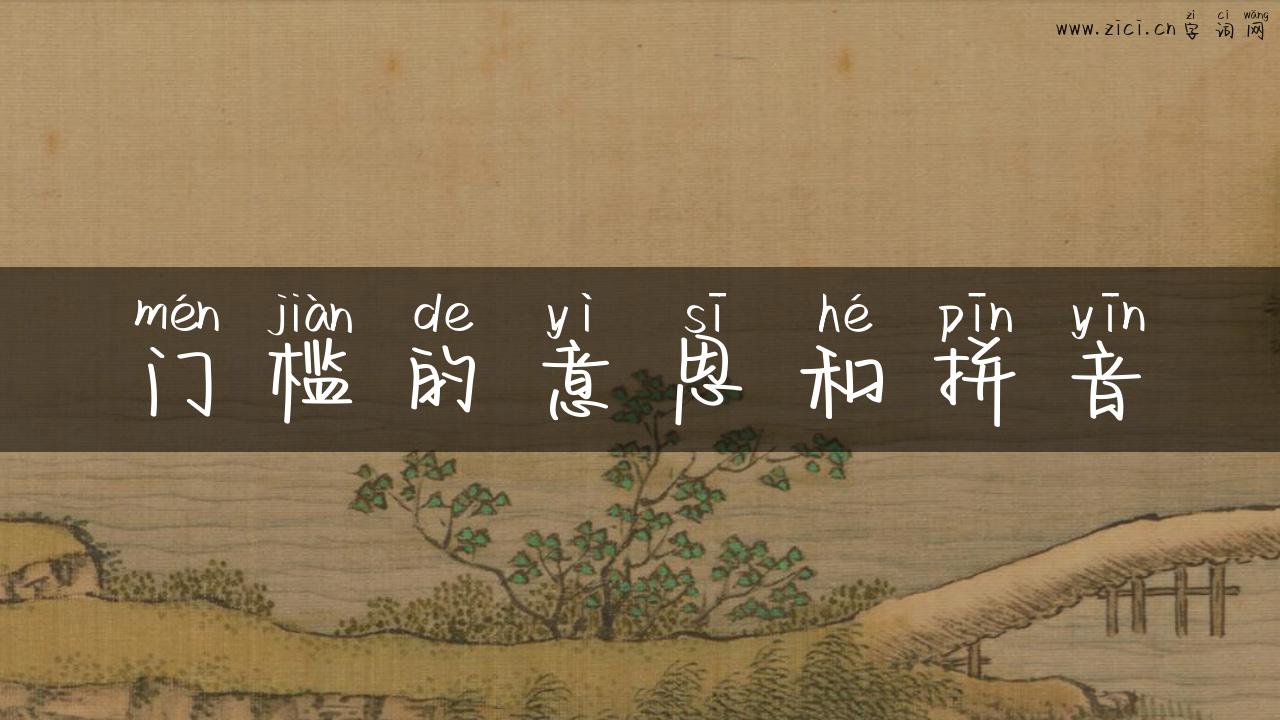 zì cí wǎng
www.zici.cn 字 词 网
mén jiàn de yì sī hé pīn yīn
门 槛 的 意 思 和 拼 音